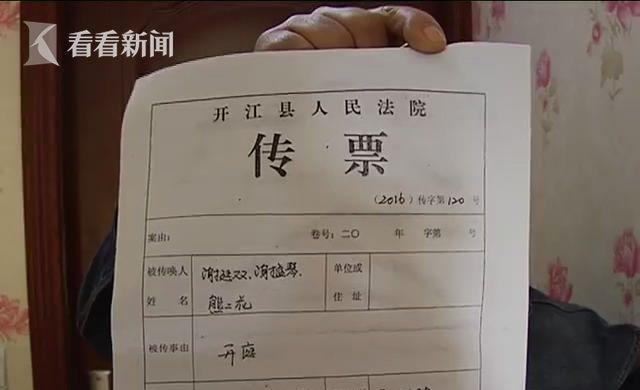 看看新闻
开江县人民法院
传票
(2016)传字第120号
案由: 卷号:二〇 年 字第 号
被传唤人 谢 双、谢 琴、 单位或
姓名 熊二 住址
被传事由 开庭